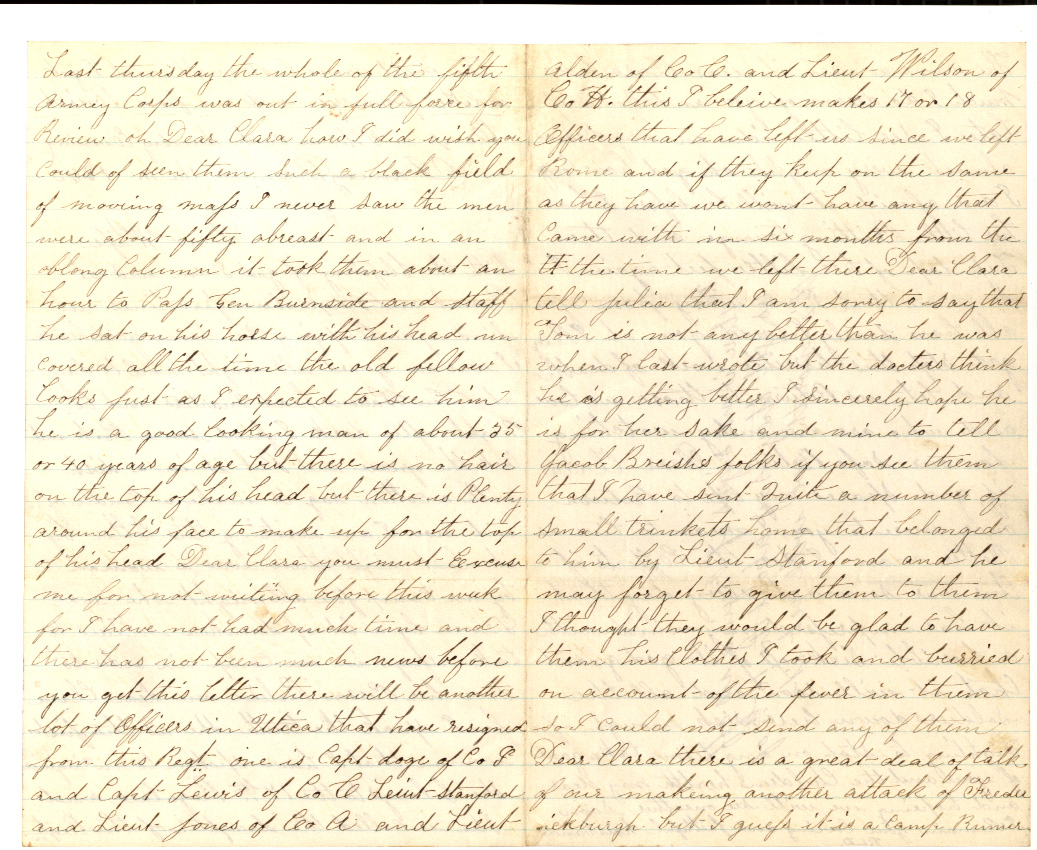 Last thursday the whole of the fifth
Armey Corps was out in full force for
Review oh Dear Clara how I did wish you
Could of seen them Such a black field
of moveing mass I never saw the men
were about fifty abreast and in an
oblong Column it took them about an
hour to Pass Gen Burnside and staff
he sat on his horse with his head un
covered all the time the old fellow
looks just as I expected to see him
he is a good looking man of about 35
or 40 years of age but there is no hair
on the top of his head but there is Plenty
around his face to make up for the top
of his head Dear Clara you must Excuse
me for not writing before this week
for I have not had much time and
there has not been much news before
you get this letter there will be another
lot of Officers in Utica that have resigned
from this Regt. one is Capt doge of Co F
and Capt Lewis of Co C Leiut Stanford
and Lieut Jones of Co A and Lieut
Alden of Co C. and Lieut Wilson of
Co H. this I beleive makes 17 or 18
Officers that have left us since we left
Rome and if they keep on the same
as they have we wont have any that
Came with in six months from the
the time we left there Dear Clara
tell julia that I am sorry to say that
Tom is not any better than he was
when I last wrote but the docters think
he is getting better I sincerely hope he
is for her sake and mine to tell
Jacob folks if you see them
that I have sent Quite a number of
small trinkets home that belonged
to him by Lieut Stanford and he
may forget to give them to them
I thought they would be glad to have
them his Clothes I took and burried
on account of the fever in them
so I could not send any of them
Dear Clara there is a great deal of talk
of our makeing another attack of Freder
ickburgh but I guess it is a Camp Rumer